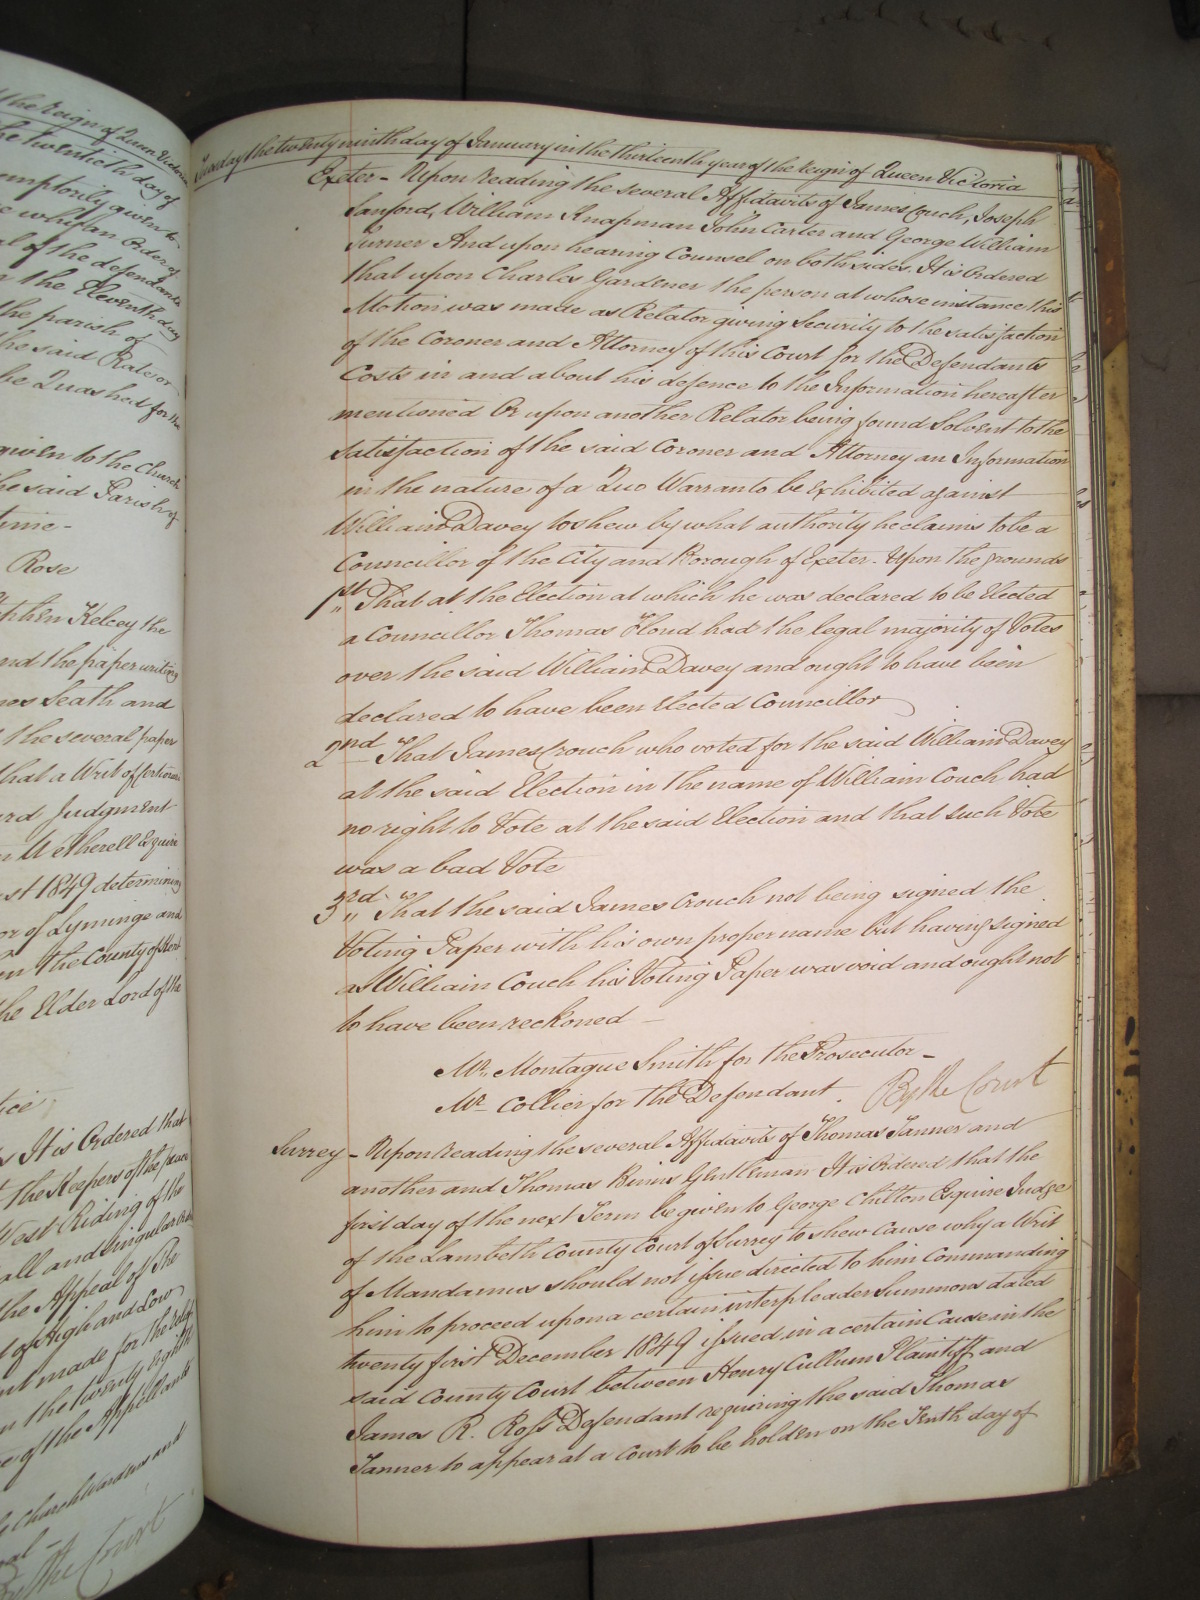 the Reign of Queen Victoria
the twentieth day of
emptorily given to
why an Order of
of the defendants
the Eleventh day
the parish of
the said Rates or
be Quashed for the
given to the Church
the said Parish of
time -
Rose
Stephen Kelcey the
and the paper writing
Seath and
the several paper
that a Writ of Certiorari
Judgment
Wetherell Esquire
1849 determining
or of Lyminge and
in the County of Kent
the Elder Lord of the
It is Ordered that
The Keepers of the peace
West Riding of the
all and singular Orders
the Appeal of The
of High and Low
made for the relief
the twenty eighth
of the Appellants
Church Wardens and
By the Court
Tuesday the twenty ninth day of January in the thirteenth year of the Reign of Queen Victoria
Exeter - Upon reading the several Affidavits of James Couch, Joseph
Sanford, William Knapman John Carter and George William
Turner And upon hearing Counsel on both sides. It is Ordered
that upon Charles Gardener the person at whose instance this
Motion was made as Relator giving Security to the satisfaction
of the Coroner and Attorney of this Court for the Defendants
Costs in and about his defence to the Information hereafter
mentioned Or upon another Relator being found Solvent to the
Satisfaction of the said Coroner and Attorney an Information
in the nature of a Quo Warranto be Exhibited against
William Davey to shew by what authority he claims to be a
Councillor of the City and Borough of Exeter. Upon the grounds
1st That at the Election at which he was declared to be Elected
a Councillor Thomas Floud had the legal majority of Votes
over the said William Davey and ought to have been
declared to have been Elected Councillor
2nd That James Crouch who voted for the said William Davey
at the said Election in the name of William Couch had
no right to Vote at the said Election and that such Vote
was a bad Vote
3rd That the said James Crouch not being signed the
Voting Paper with his own proper name but having signed
as William Couch his Voting Paper was void and ought not
to have been reckoned -
Mr. Montague Smith for the Prosecutor -
Mr Collier for the Defendant. By the Court
Surrey - Upon reading the several Affidavits of Thomas Tanner and
another and Thomas Binns Gentleman It is Ordered that the
first day of the next Term be given to George Chilton Esquire Judge
of the Lambeth County Court of Surrey to shew Cause why a Writ
of Mandamus should not issue directed to him Commanding
him to proceed upon a certain interpleader Summons dated
twenty first December 1849 issued in a certain Cause in the
said County Court between Henry Cullum Plaintiff and
James R. Ross Defendant requiring the said Thomas
Tanner to appear at a Court to be holden on the Tenth day of